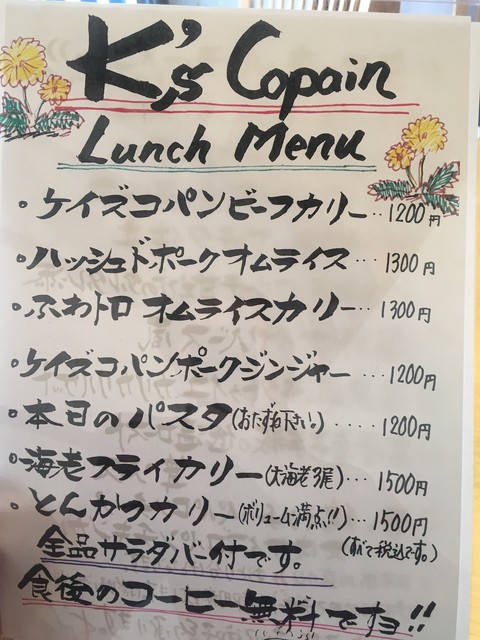 K's Copain
Lunch Menu
・ケイズコパンビーフカリー‥1200円
・ハッシュドポークオムライス‥‥1300円
・ふわトロオムライスカリー‥1300円
・ケイズコパンポークジンジャー‥‥1200円
・本日のパスタ(おたずね下さい。)‥‥1200円
・海老フライカリー(大海老3尾)‥‥1500円
・とんかつカリー(ボリューム満点!!)‥‥1500円
全品サラダバー付です。 (すべて税込です。)
食後のコーヒー無料ですヨ!!